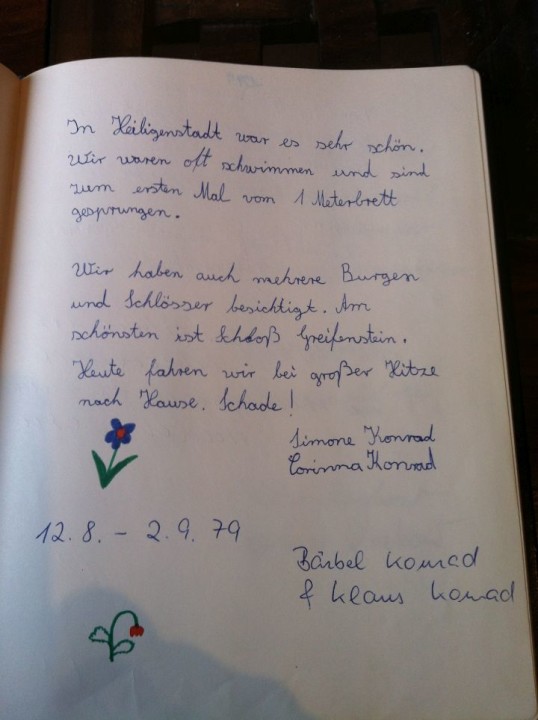 In Heiligenstadt war es sehr schön.
Wir waren oft schwimmen und sind
zum ersten Mal vom 1 Meterbrett
gesprungen.
Wir haben auch mehrere Burgen
und Schlösser besichtigt. Am
schönsten ist Schloß Greifenstein.
Heute fahren wir bei großer Hitze
nach Hause. Schade!
Simone Konrad
Corinna Konrad
12. 8. - 2. 9. 79
Bärbel Konrad
& Klaus Konrad